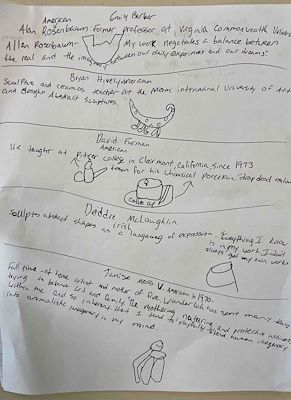 American Emily Parker
Alan Rosenbaum former professor at Virginia Commonwealth
Allan Rosenbaum- My work negotiates a balance between
the real and the imagined between our daily experiences and our dreams.
Bryan Hively American
Sculpture and ceramics teacher at the Miami international University of Art
and design Abstract Sculptures.
David Furman
American
He taught at pitzer college in Clermont, California since 1973
known for his whimsical porcelain "drop dead
coffee cup
Deddre McLaughlin
irish
Sculpts abstract shapes as a language of expression. "Everything I know
is in my work. I don't
always get my own work
Janise American b 1970.
Full time at home artist and mother of five. Wunder has spent many days
trying to balance art and family. The mothering, nurturing and protective
within me and so inherent that I tend to playfully blend human imagery
into animalistic imagery in my mind.